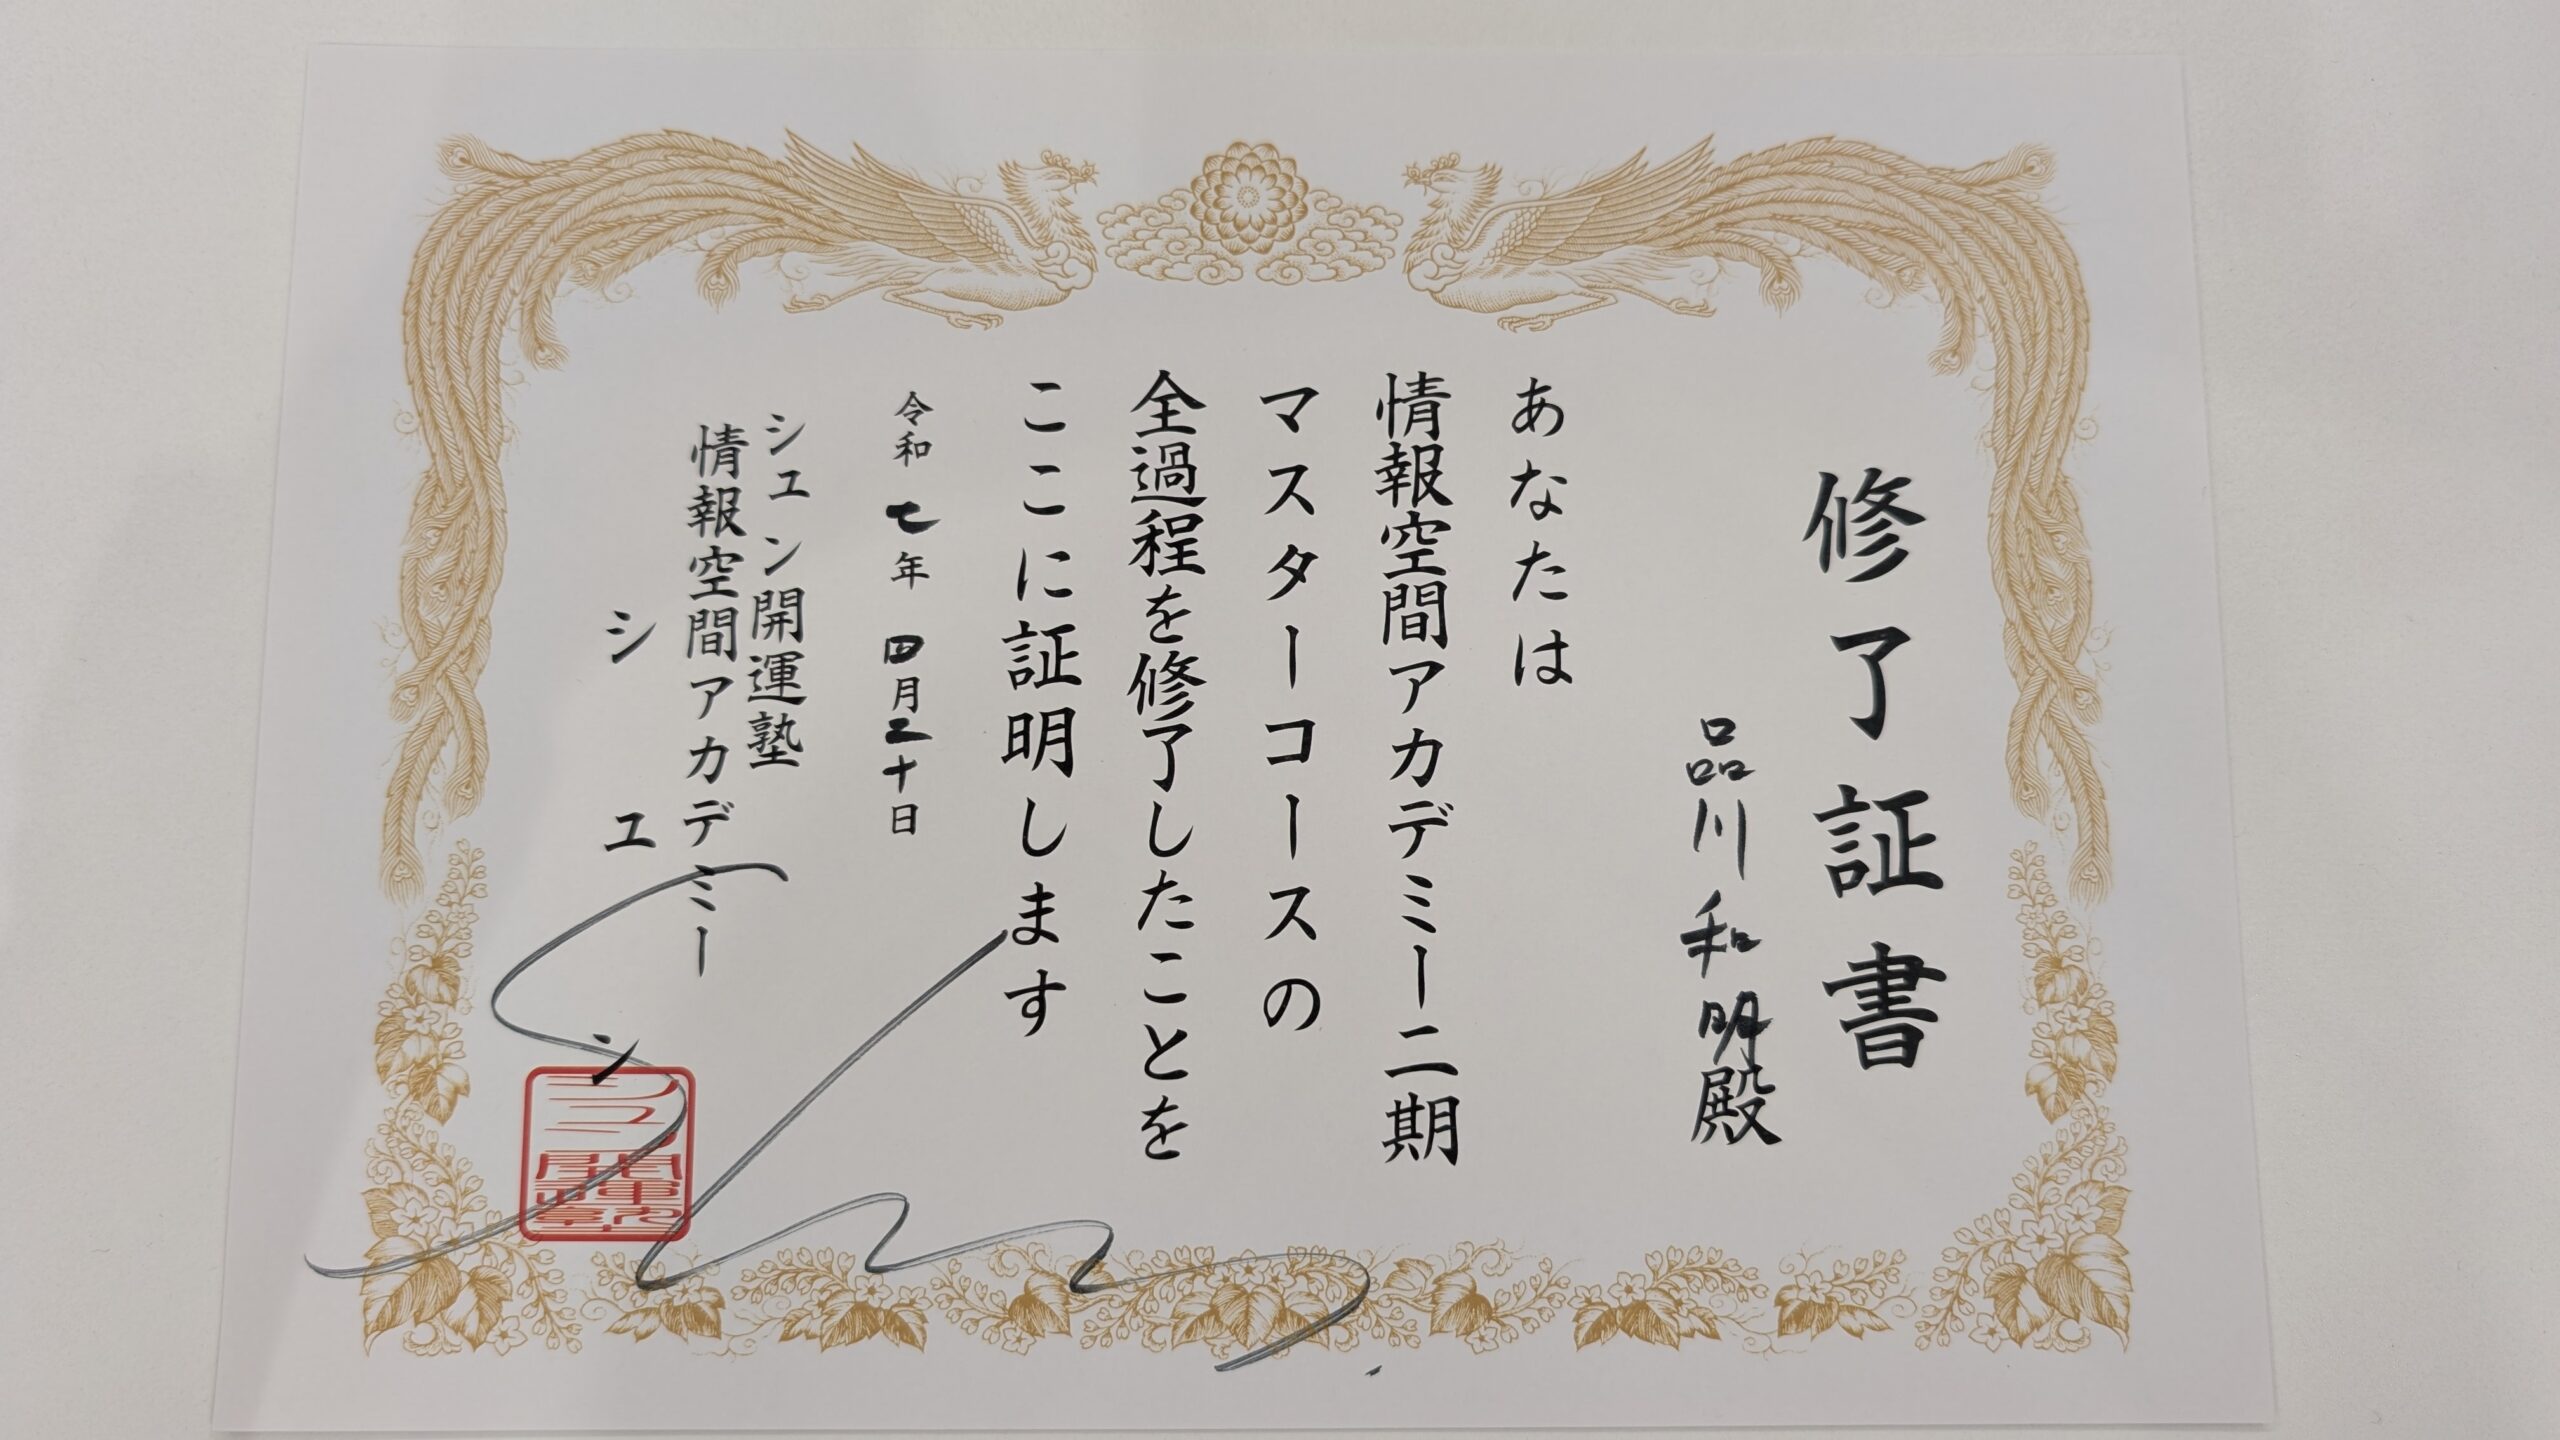 修了証書
品川和明殿
あなたは
情報空間アカデミー二期
マスターコースの
全過程を修了したことを
ここに証明します
令和七年四月三十日
シュン開運塾
情報空間アカデミー
シュン